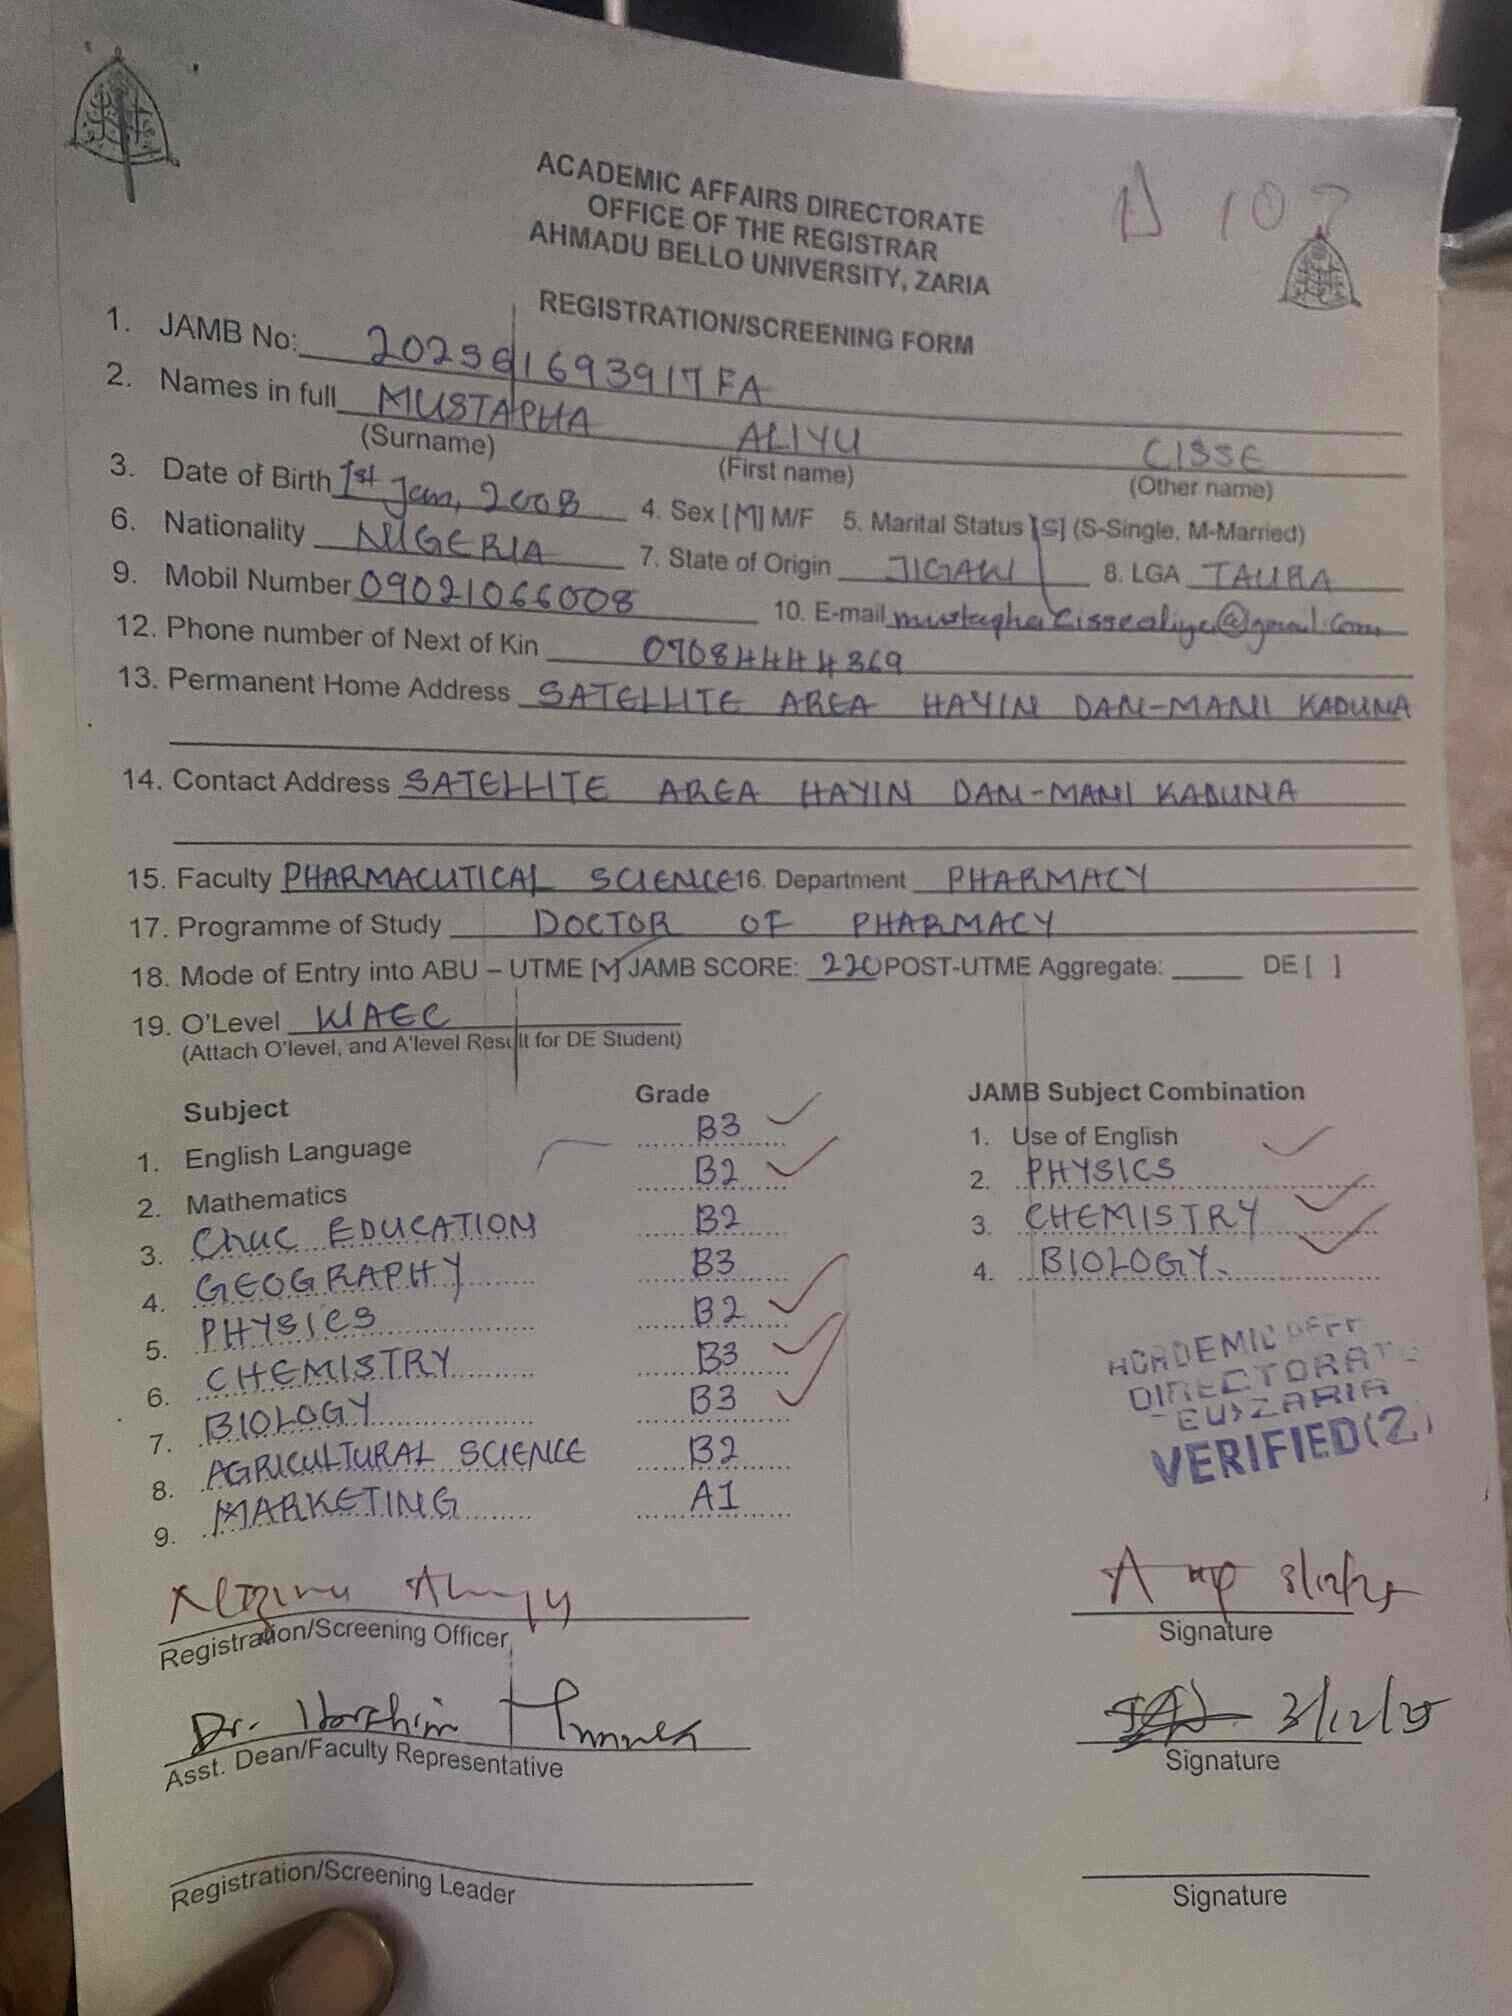 ACADEMIC AFFAIRS DIRECTORATE
OFFICE OF THE REGISTRAR
AHMADU BELLO UNIVERSITY, ZARIA
REGISTRATION/SCREENING FORM
1. JAMB No: 202561693917FA
2. Names in full MUSTAPHA ALIYU CISSE
(Surname) (First name) (Other name)
3. Date of Birth 1st Jan, 2008 4. Sex [M] M/F 5. Marital Status [S] (S-Single, M-Married)
6. Nationality NIGERIA 7. State of Origin JIGAWI 8. LGA TAURA
9. Mobil Number 09021066008 10. E-mail mustaphacissealiyu@gmail.com
12. Phone number of Next of Kin 07084444369
13. Permanent Home Address SATELLITE AREA HAYIN DAN-MANI KADUNA
14. Contact Address SATELLITE AREA HAYIN DAN-MANI KADUNA
15. Faculty PHARMACUTICAL SCIENCE 16. Department PHARMACY
17. Programme of Study DOCTOR OF PHARMACY
18. Mode of Entry into ABU – UTME [✓] JAMB SCORE: 220 POST-UTME Aggregate: ____ DE [ ]
19. O'Level WAEC
(Attach O'level, and A'level Result for DE Student)
Subject Grade JAMB Subject Combination
1. English Language B3 1. Use of English
2. Mathematics B2 2. PHYSICS
3. EDUCATION B2 3. CHEMISTRY
4. GEOGRAPHY B3 4. BIOLOGY
5. PHYSICS B2
6. CHEMISTRY B3
7. BIOLOGY B3
8. AGRICULTURAL SCIENCE B2
9. MARKETING A1
ACADEMIC
DIRECTORATE
ZARIA
VERIFIED(2)
3/12/25
Registration/Screening Officer Signature
Dr. Ibrahim 3/12/25
Asst. Dean/Faculty Representative Signature
Registration/Screening Leader Signature